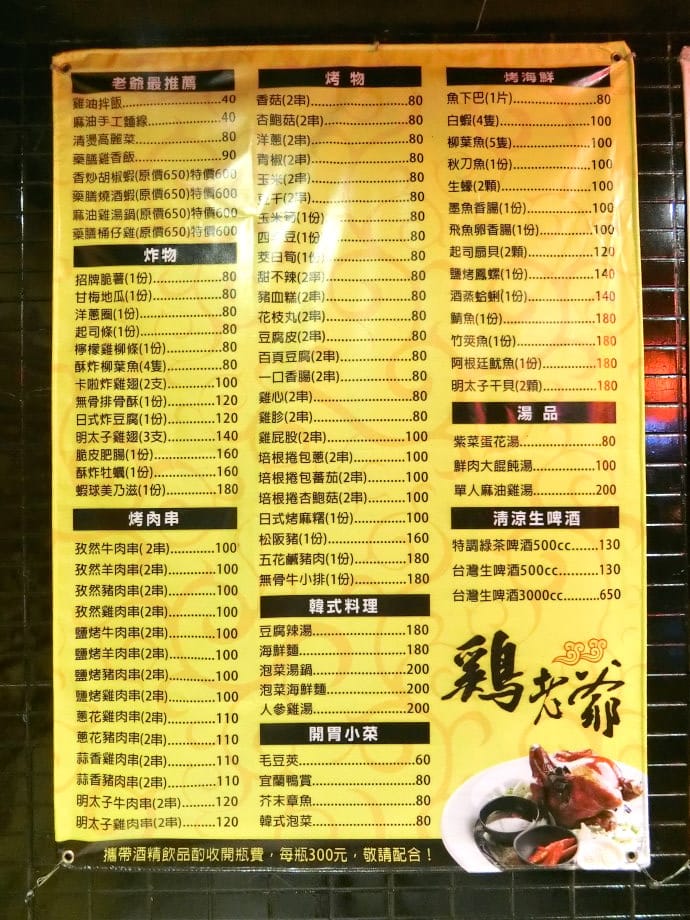 老爺最推薦
雞油拌飯........40
麻油手工麵線........40
清燙高麗菜........80
藥膳雞香飯........90
香炒胡椒蝦(原價650)特價600
藥膳燒酒蝦(原價650)特價600
麻油雞湯鍋(原價650)特價600
藥膳桶仔雞(原價650)特價600
炸物
招牌脆薯(1份)........80
甘梅地瓜(1份)........80
洋蔥圈(1份)........80
起司條(1份)........80
檸檬雞柳條(1份)........80
酥炸柳葉魚(4隻)........80
卡啦炸雞翅(2支)........100
無骨排骨酥(1份)........120
日式炸豆腐(1份)........120
明太子雞翅(3支)........140
脆皮肥腸(1份)........160
酥炸牡蠣(1份)........160
蝦球美乃滋(1份)........180
烤肉串
孜然牛肉串(2串)........100
孜然羊肉串(2串)........100
孜然豬肉串(2串)........100
孜然雞肉串(2串)........100
鹽烤牛肉串(2串)........100
鹽烤羊肉串(2串)........100
鹽烤豬肉串(2串)........100
鹽烤雞肉串(2串)........100
蔥花雞肉串(2串)........110
蔥花豬肉串(2串)........110
蒜香雞肉串(2串)........110
蒜香豬肉串(2串)........110
明太子牛肉串(2串)........120
明太子雞肉串(2串)........120
烤物
香菇(2串)........80
杏鮑菇(2串)........80
洋蔥(2串)........80
青椒(2串)........80
玉米(2串)........80
豆干(2串)........80
玉米筍(1份)........80
四季豆(1份)........80
茭白筍(1份)........80
甜不辣(2串)........80
豬血糕(2串)........80
花枝丸(2串)........80
豆腐皮(2串)........80
百頁豆腐(2串)........80
一口香腸(2串)........80
雞心(2串)........80
雞胗(2串)........80
雞屁股(2串)........100
培根捲包蔥(2串)........100
培根捲包蕃茄(2串)........100
培根捲杏鮑菇(2串)........100
日式烤麻糬(1份)........100
松阪豬(1份)........160
五花鹹豬肉(1份)........180
無骨牛小排(1份)........180
韓式料理
豆腐辣湯........180
海鮮麵........180
泡菜湯鍋........200
泡菜海鮮麵........200
人參雞湯........200
開胃小菜
毛豆莢........60
宜蘭鴨賞........80
芥末章魚........80
韓式泡菜........80
烤海鮮
魚下巴(1片)........80
白蝦(4隻)........100
柳葉魚(5隻)........100
秋刀魚(1份)........100
生蠔(2顆)........100
墨魚香腸(1份)........100
飛魚卵香腸(1份)........100
起司扇貝(2顆)........120
鹽烤鳳螺(1份)........140
酒蒸蛤蜊(1份)........140
鯖魚(1份)........180
竹筴魚(1份)........180
阿根廷魷魚(1份)........180
明太子干貝(2顆)........180
湯品
紫菜蛋花湯........80
鮮肉大餛飩湯........100
單人麻油雞湯........200
清涼生啤酒
特調綠茶啤酒500cc........130
台灣生啤酒500cc........130
台灣生啤酒3000cc........650
雞老爺
攜帶酒精飲品酌收開瓶費，每瓶300元，敬請配合！